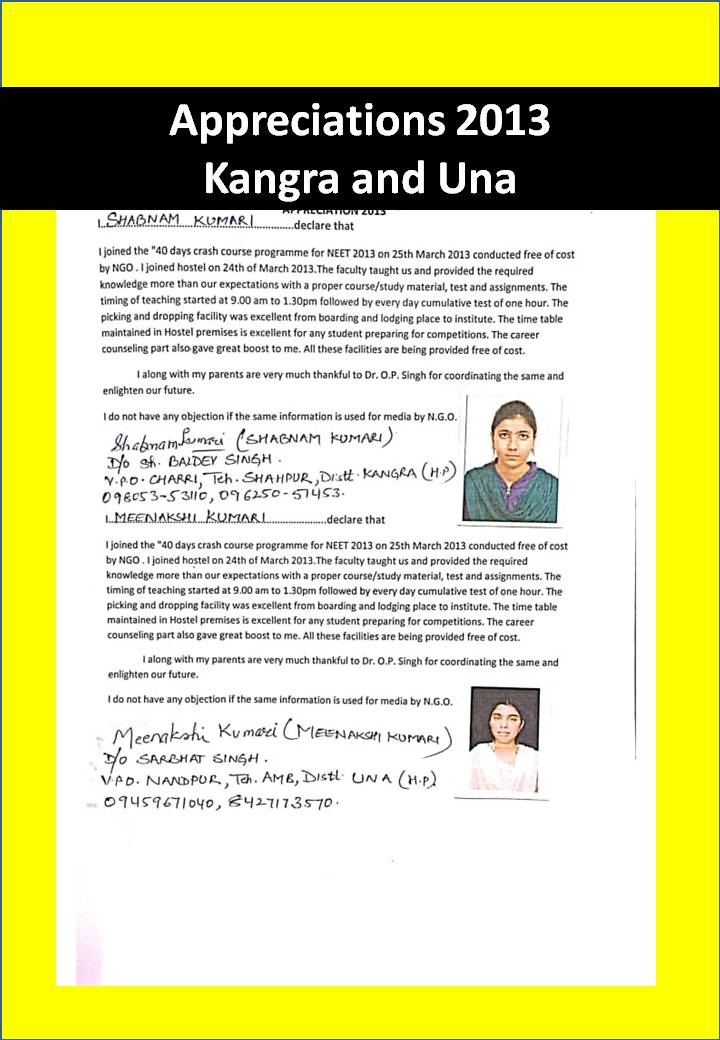 Appreciations 2013
Kangra and Una
APPRECIATION 2013
I, SHABNAM KUMARI...............declare that
I joined the "40 days crash course programme for NEET 2013 on 25th March 2013 conducted free of cost
by NGO . I joined hostel on 24th of March 2013.The faculty taught us and provided the required
knowledge more than our expectations with a proper course/study material, test and assignments. The
timing of teaching started at 9.00 am to 1.30pm followed by every day cumulative test of one hour. The
picking and dropping facility was excellent from boarding and lodging place to institute. The time table
maintained in Hostel premises is excellent for any student preparing for competitions. The career
counseling part also gave great boost to me. All these facilities are being provided free of cost.
I along with my parents are very much thankful to Dr. O.P. Singh for coordinating the same and
enlighten our future.
I do not have any objection if the same information is used for media by N.G.O.
Shabnam Kumari (SHABNAM KUMARI)
D/o Sh. BALDEV SINGH.
V.P.O. CHARRI, Teh. SHAHPUR, Distt. KANGRA (H.P)
098053-53110, 096250-51453.
I, MEENAKSHI KUMARI.....................declare that
I joined the "40 days crash course programme for NEET 2013 on 25th March 2013 conducted free of cost
by NGO . I joined hostel on 24th of March 2013.The faculty taught us and provided the required
knowledge more than our expectations with a proper course/study material, test and assignments. The
timing of teaching started at 9.00 am to 1.30pm followed by every day cumulative test of one hour. The
picking and dropping facility was excellent from boarding and lodging place to institute. The time table
maintained in Hostel premises is excellent for any student preparing for competitions. The career
counseling part also gave great boost to me. All these facilities are being provided free of cost.
I along with my parents are very much thankful to Dr. O.P. Singh for coordinating the same and
enlighten our future.
I do not have any objection if the same information is used for media by N.G.O.
Meenakshi Kumari (MEENAKSHI KUMARI)
D/o SARBHAT SINGH.
V.P.O. NANDPUR, Teh. AMB, Distt. UNA (H.P)
09459671040, 8427173570.